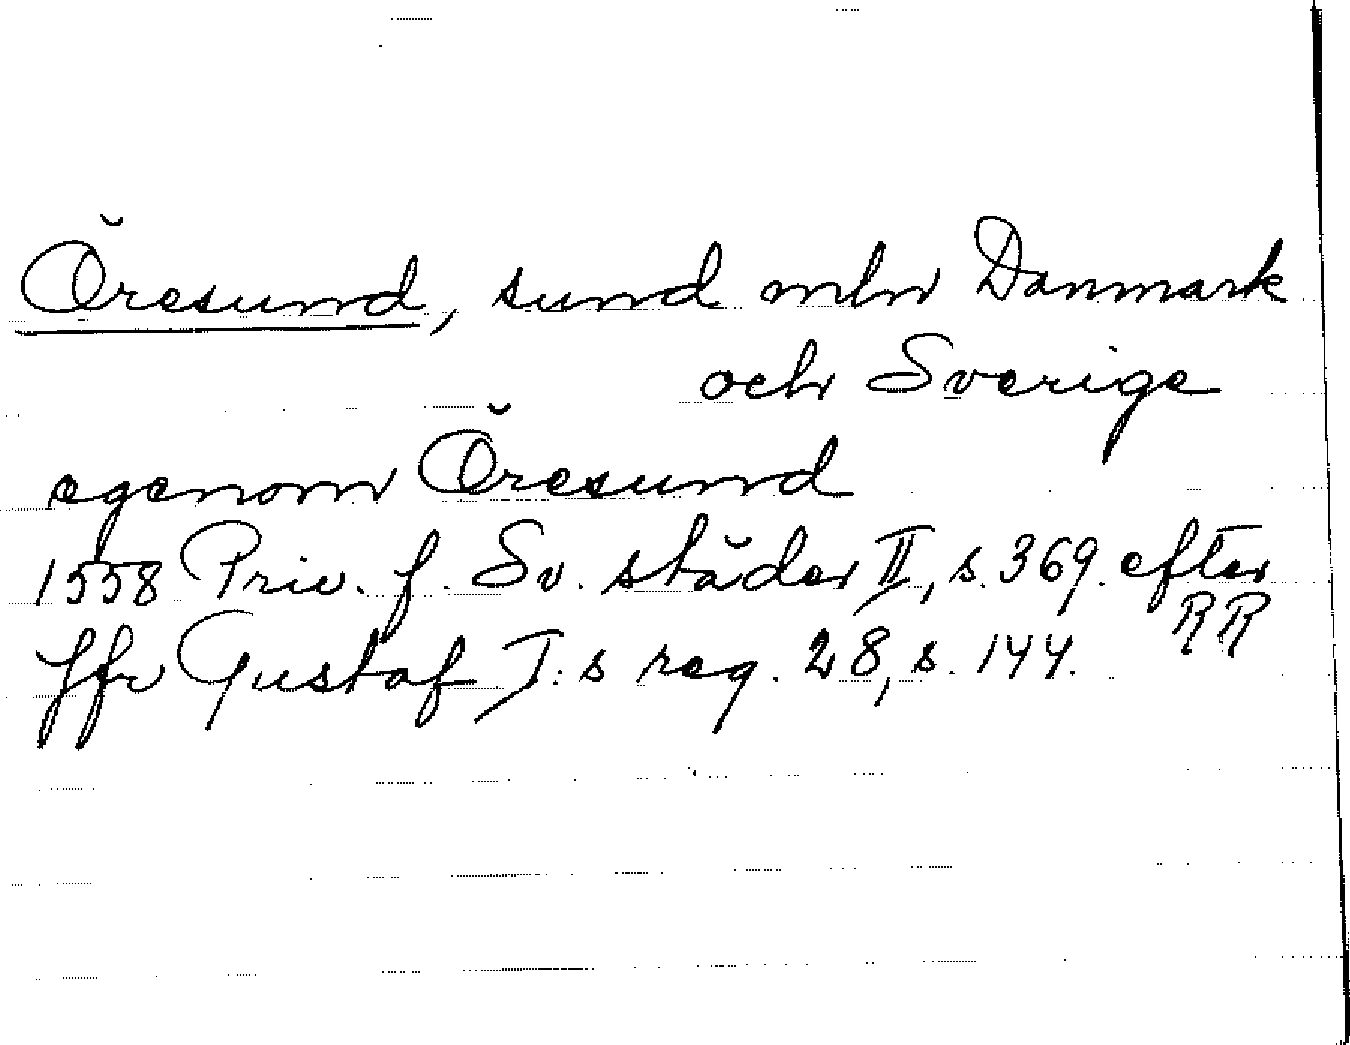 Öresund, sund mln Danmark
och Sverige
egenom Öresund
1558 Priv. f. Sv. städer II, s. 369. efter
RR
Jfr Gustaf I:s reg. 28, s. 144.